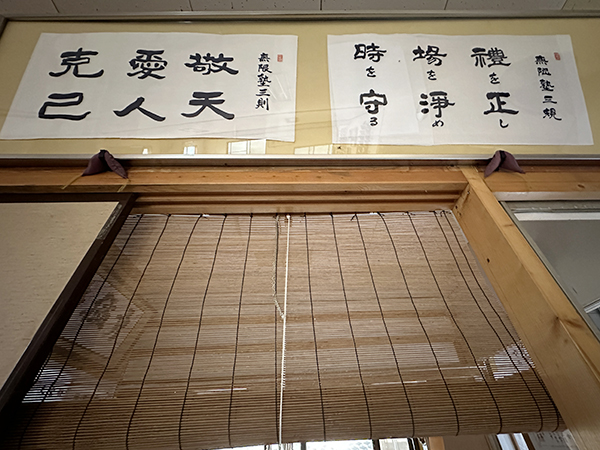 無限塾三規
禮を正し
場を淨め
時を守る
無限塾三則
敬天
愛人
克己